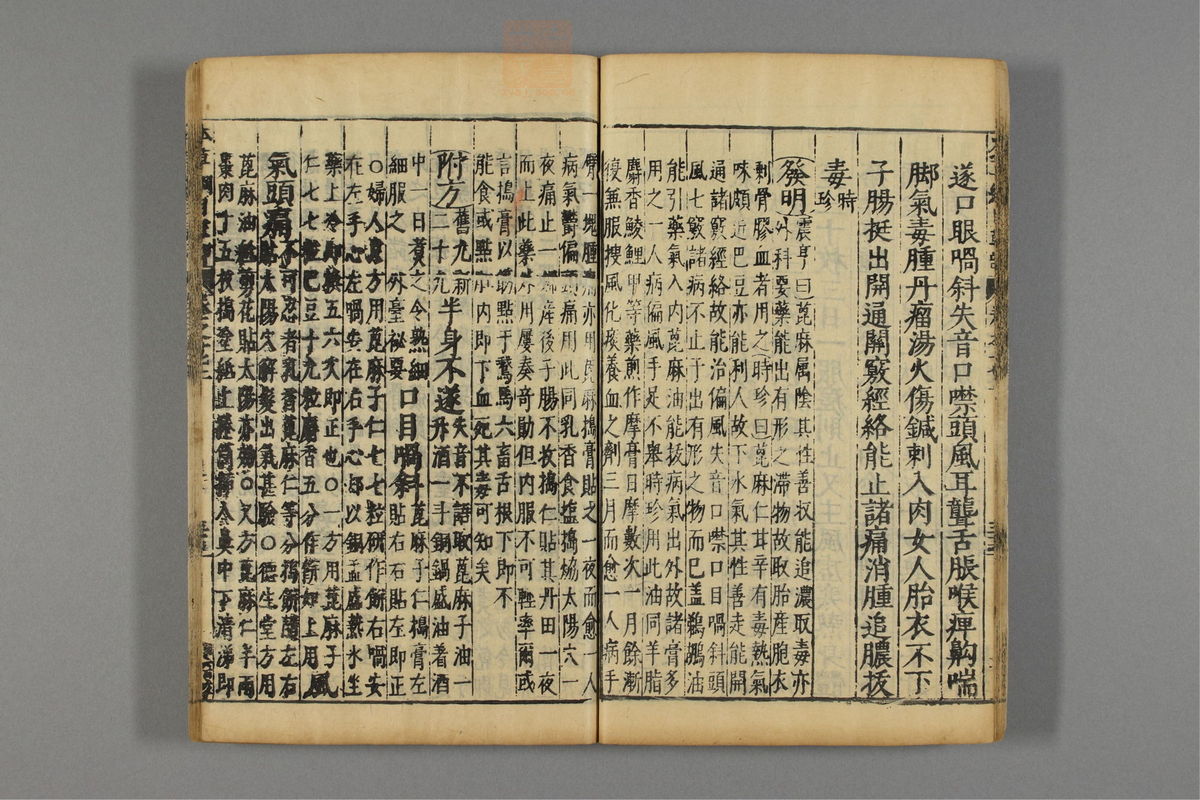 遂口眼喎斜失音口噤頭風耳聾舌脹喉痺齁喘
脚氣毒腫丹瘤湯火傷鍼刺入肉女人胎衣不下
子腸挺出開通關竅經絡能止諸痛消腫追膿拔
毒時珍
發明震亨曰蓖麻屬陰其性善收能追濃取毒亦
外科要藥能出有形之滯物故取胎產胞衣
剩骨膠血者用之時珍曰蓖麻仁甘辛有毒熱氣
味頗近巴豆亦能利人故下水氣其性善走能開
通諸竅經絡故能治偏風失音口噤口目喎斜頭
風七竅諸病不止于出有形之物而已蓋鵜鶘油
能引藥氣入內蓖麻油能拔病氣出外故諸膏多
用之一人病偏風手足不舉時珍用此油同羊脂
麝香鯪鯉甲等藥煎作摩膏日摩數次一月餘漸
復兼服搜風化痰養血之劑三月而愈一人病手
臂一塊腫痛亦用蓖麻搗膏貼之一夜而愈一人
病氣鬱偏頭痛用此同乳香食塩搗㷀太陽穴一
夜痛止一婦産後子腸不收搗仁貼其丹田一夜
而上此藥外用屢奏奇勛但内服不可輕率爾或
言搗膏以筯點于鵞馬六畜舌根下即不
能食或點肛内即下血死其毒可知矣
附方舊九新二十九半身不遂失音不語取蓖麻子油一
升酒一斗銅鍋盛油著酒
中一日煮之令熟細
細服之 外臺祕要口目喎斜蓖麻子仁搗膏左
貼右右貼左即正
〇婦人良方用蓖麻子仁七七粒研作餅右喎安
在左手心左喎安在右手心郤以銅盂盛熱水坐
藥上冷即換五六次即正也〇一方用蓖麻子
仁七七粒巴豆十九粒麝香五分作餅如上用風
氣頭痛不可忍者乳香蓖麻仁等分搗餅隨左右
貼太陽穴解髮出氣甚驗〇德生堂方用
蓖麻油紙剪花貼太陽亦效〇又方蓖麻仁半兩
棗肉十五枚搗塗紙上捲筒揷入鼻中下清涕即